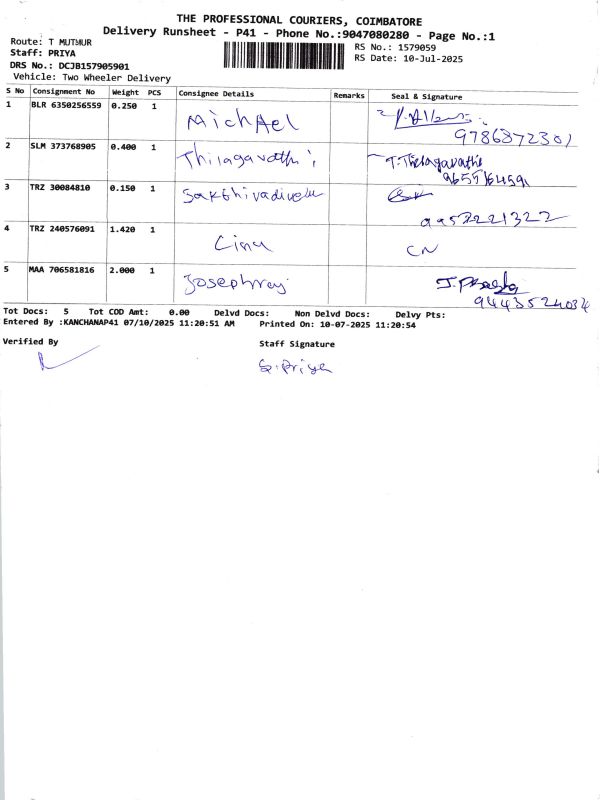 THE PROFESSIONAL COURIERS, COIMBATORE
Delivery Runsheet - P41 - Phone No.:9047080280 - Page No.:1
Route: T MUTMUR
Staff: PRIYA
DRS No.: DCJB157905901
Vehicle: Two Wheeler Delivery
RS No.: 1579059
RS Date: 10-Jul-2025
S No Consignment No Weight PCS Consignee Details Remarks Seal & Signature
1 BLR 6350256559 0.250 1 Michael
9786872301
2 SLM 373768905 0.400 1 Thilagavathi T. Thilagavathi
9655764591
3 TRZ 30084810 0.150 1 Sakthivadivelu
9952221322
4 TRZ 240576091 1.420 1 Cinu CN
5 MAA 706581816 2.000 1 Josephraj
9443524034
Tot Docs: 5 Tot COD Amt: 0.00 Delvd Docs: Non Delvd Docs: Delvy Pts:
Entered By :KANCHANAP41 07/10/2025 11:20:51 AM Printed On: 10-07-2025 11:20:54
Verified By Staff Signature
S. Priya